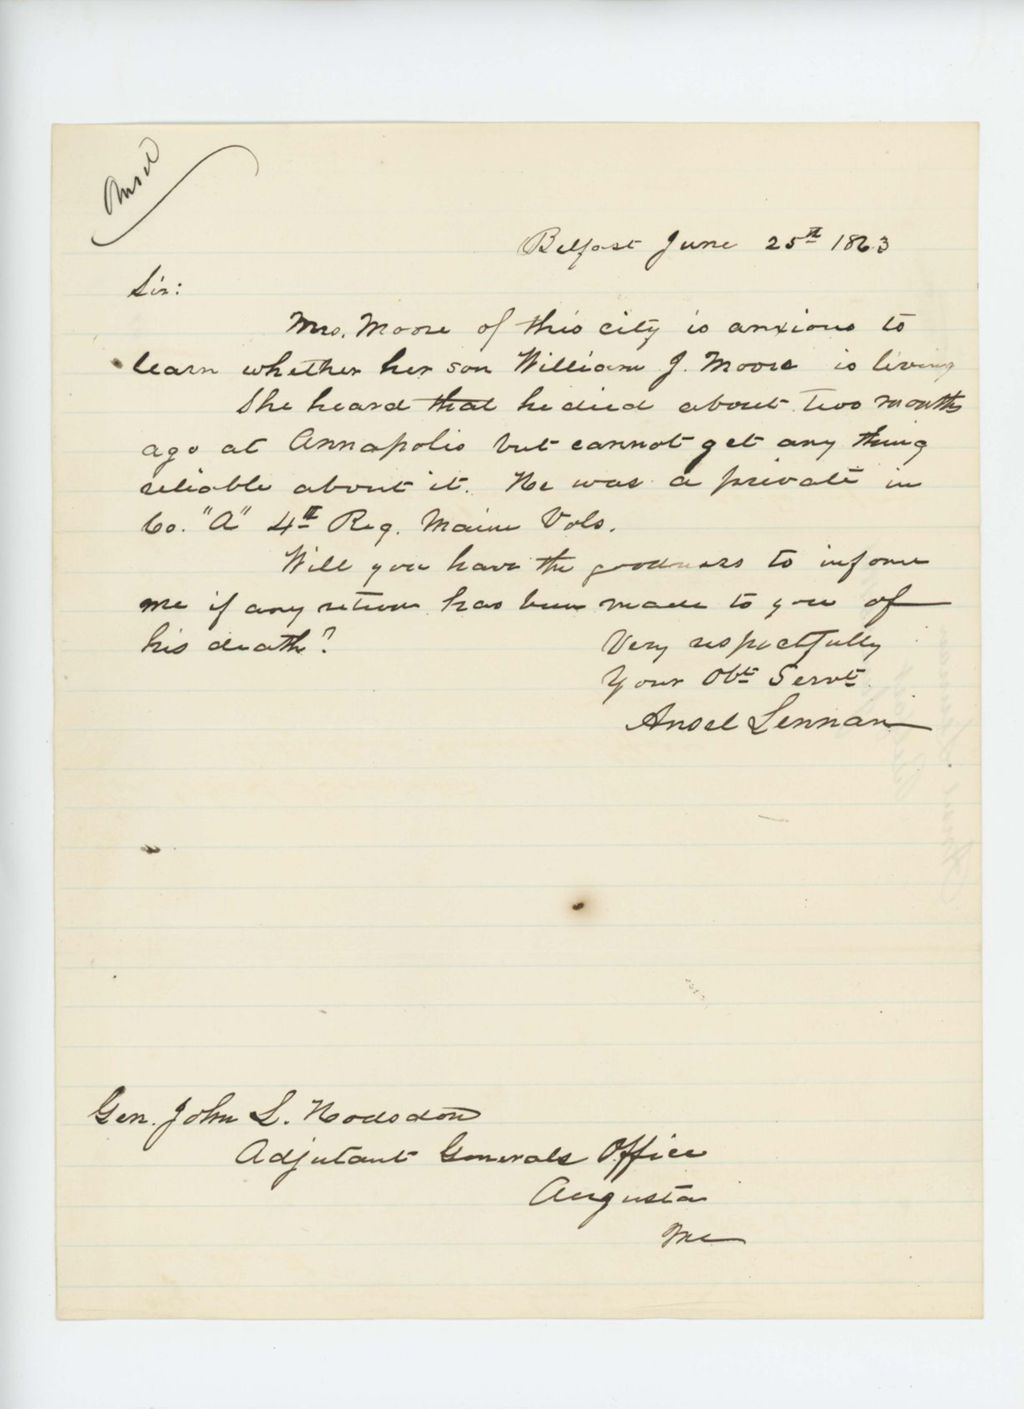 Ansel
Belfast June 25th 1863
Sir:
Mrs. Moore of this city is anxious to
learn whether her son William J. Moore is living
She heard that he died about two months
ago at Annapolis but cannot get any thing
reliable about it. He was a private in
Co. "A" 4th Reg. Maine Vols.
Will you have the goodness to inform
me if any return has been made to you of
his death?
Very respectfully
Your Obt Servt
Ansel Lennan
Gen. John L. Hodsdon
Adjutant Generals Office
Augusta
Me